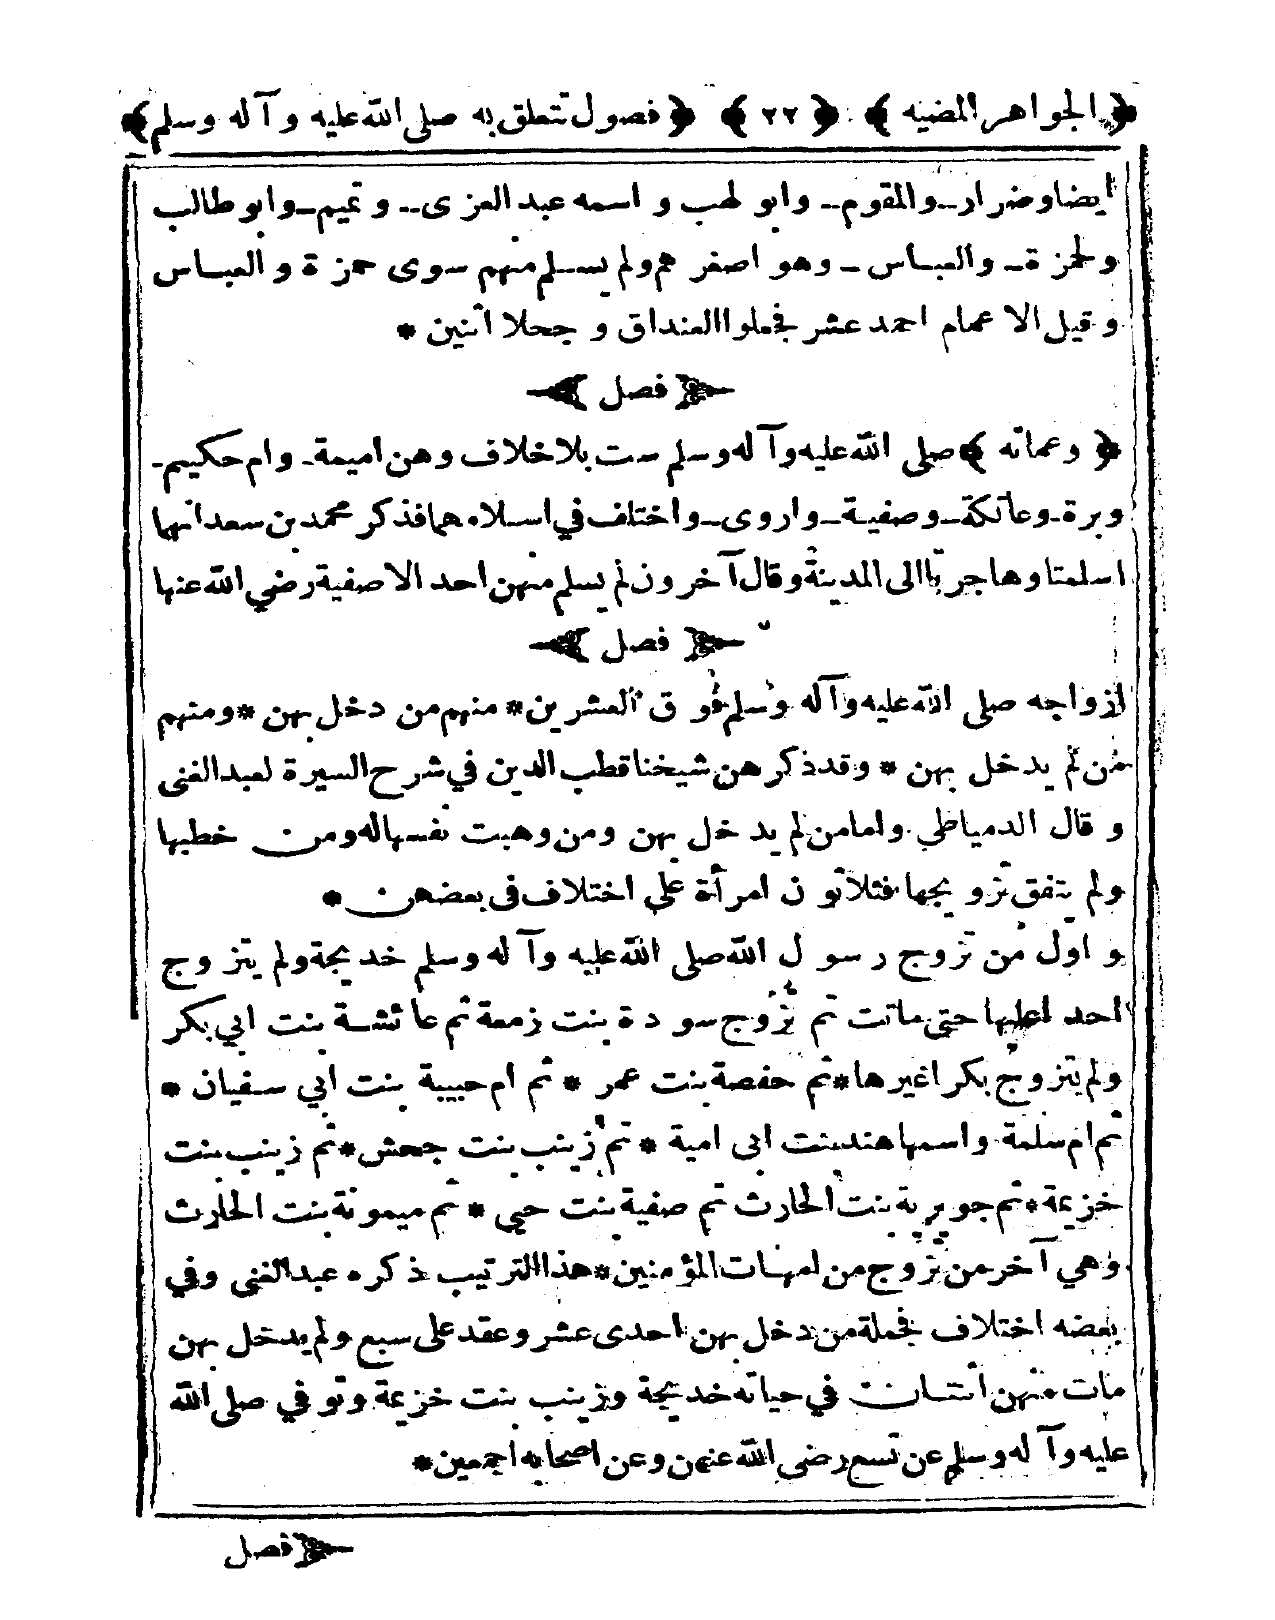 ﴿الجواهر المضيه﴾ ﴿٢٢﴾ ﴿فصول تتعلق به صلى الله عليه وآله وسلم﴾
ايضا وضرار ــ والمقوم ــ وابو لهب و اسمه عبد العزى ــ و تميم ــ وابو طالب
وحمزة ــ والعباس ــ وهو اصغر هم ولم يسلم منهم سوى حمزة و العباس
و قيل الاعمام احمد عشر فجعلوا العنداق و جحلا اثنين *
﴿ فصل ﴾
﴿ وعماته ﴾ صلى الله عليه وآله وسلم ست بلا خلاف وهن اميمة ــ وام حكيم ــ
وبرة ــ وعاتكة ــ وصفية ــ واروى ــ واختلف في اسلامهما فذكر محمد بن سعد انهما
اسلمتا وهاجرتا الى المدينة وقال آخرون لم يسلم منهن احد الا صفية رضي الله عنها
﴿ فصل ﴾
ازواجه صلى الله عليه وآله وسلم فوق العشرين * منهم من دخل بهن * ومنهم
من لم يدخل بهن * وقد ذكر هن شيخنا قطب الدين في شرح السيرة لعبد الغنى
و قال الدمياطي واما من لم يدخل بهن ومن وهبت نفسها له ومن خطبها
ولم يتفق تزويجها فثلاثون امرأة على اختلاف فى بعضهن *
و اول من تزوج رسول الله صلى الله عليه وآله وسلم خديجة ولم يتزوج
احد اعليها حتى ماتت ثم تزوج سودة بنت زمعة ثم عائشة بنت ابي بكر
ولم يتزوج بكرا غيرها * ثم حفصة بنت عمر * ثم ام حبيبة بنت ابي سفيان *
ثم ام سلمة واسمها هند بنت ابى امية * ثم زينب بنت جحش * ثم زينب بنت
خزيمة * ثم جويرية بنت الحارث ثم صفية بنت حيي * ثم ميمونة بنت الحارث
وهي آخر من تزوج من امهات المؤمنين * هذا الترتيب ذكره عبد الغنى وفي
بعضه اختلاف فجملة من دخل بهن احدى عشر وعقد على سبع ولم يدخل بهن
مات منهن اثنتان في حياته خديجة وزينب بنت خزيمة وتوفي صلى الله
عليه وآله وسلم عن تسع رضى الله عنهن وعن اصحابه اجمعين *
﴿فصل